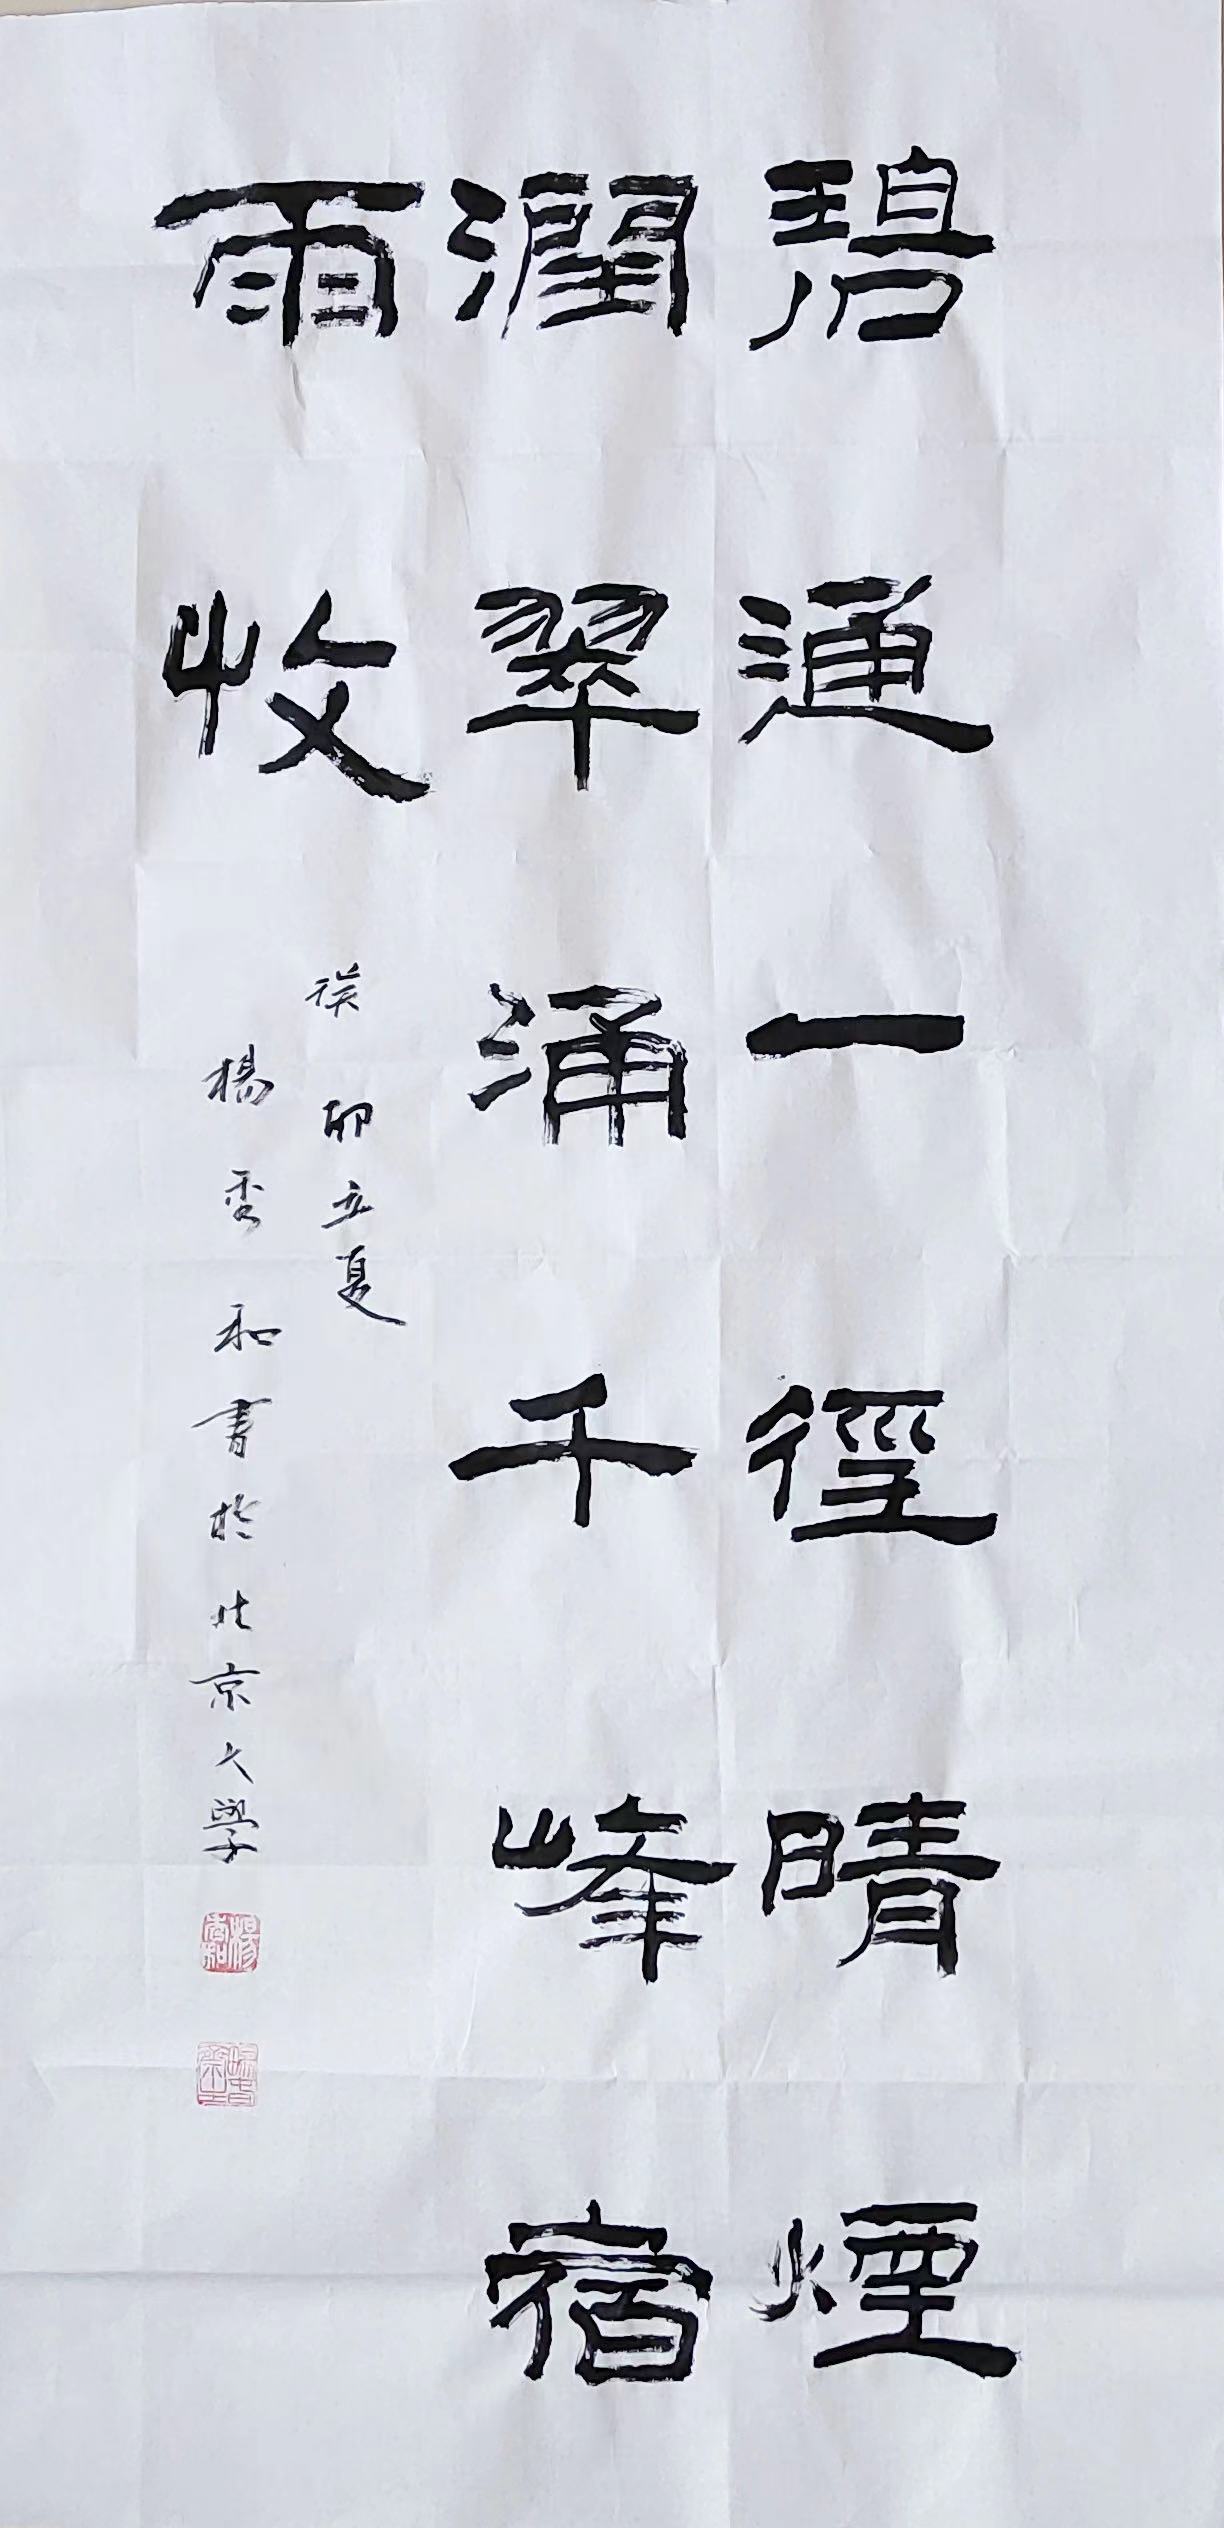 碧通一徑晴煙
潤翠涌千峰宿
雨收
癸卯立夏
楊秀和書於北京大學
楊秀和